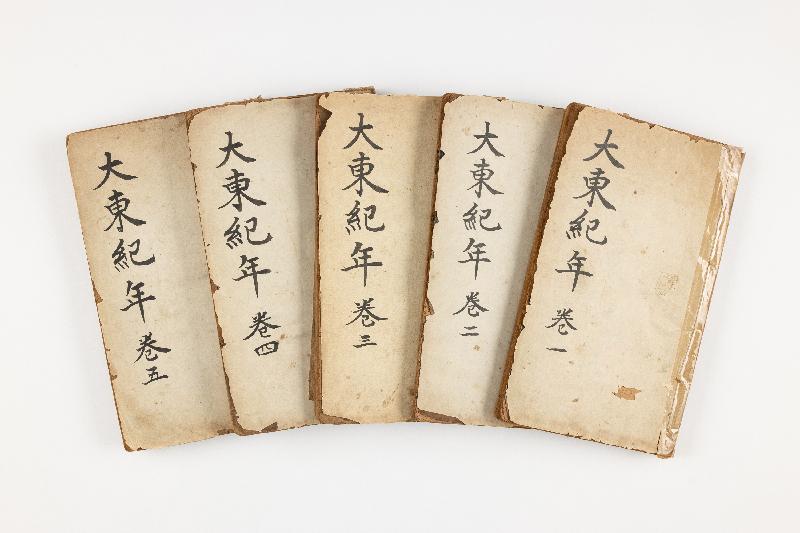 大東紀年 卷一
大東紀年 卷二
大東紀年 卷三
大東紀年 卷四
大東紀年 卷五